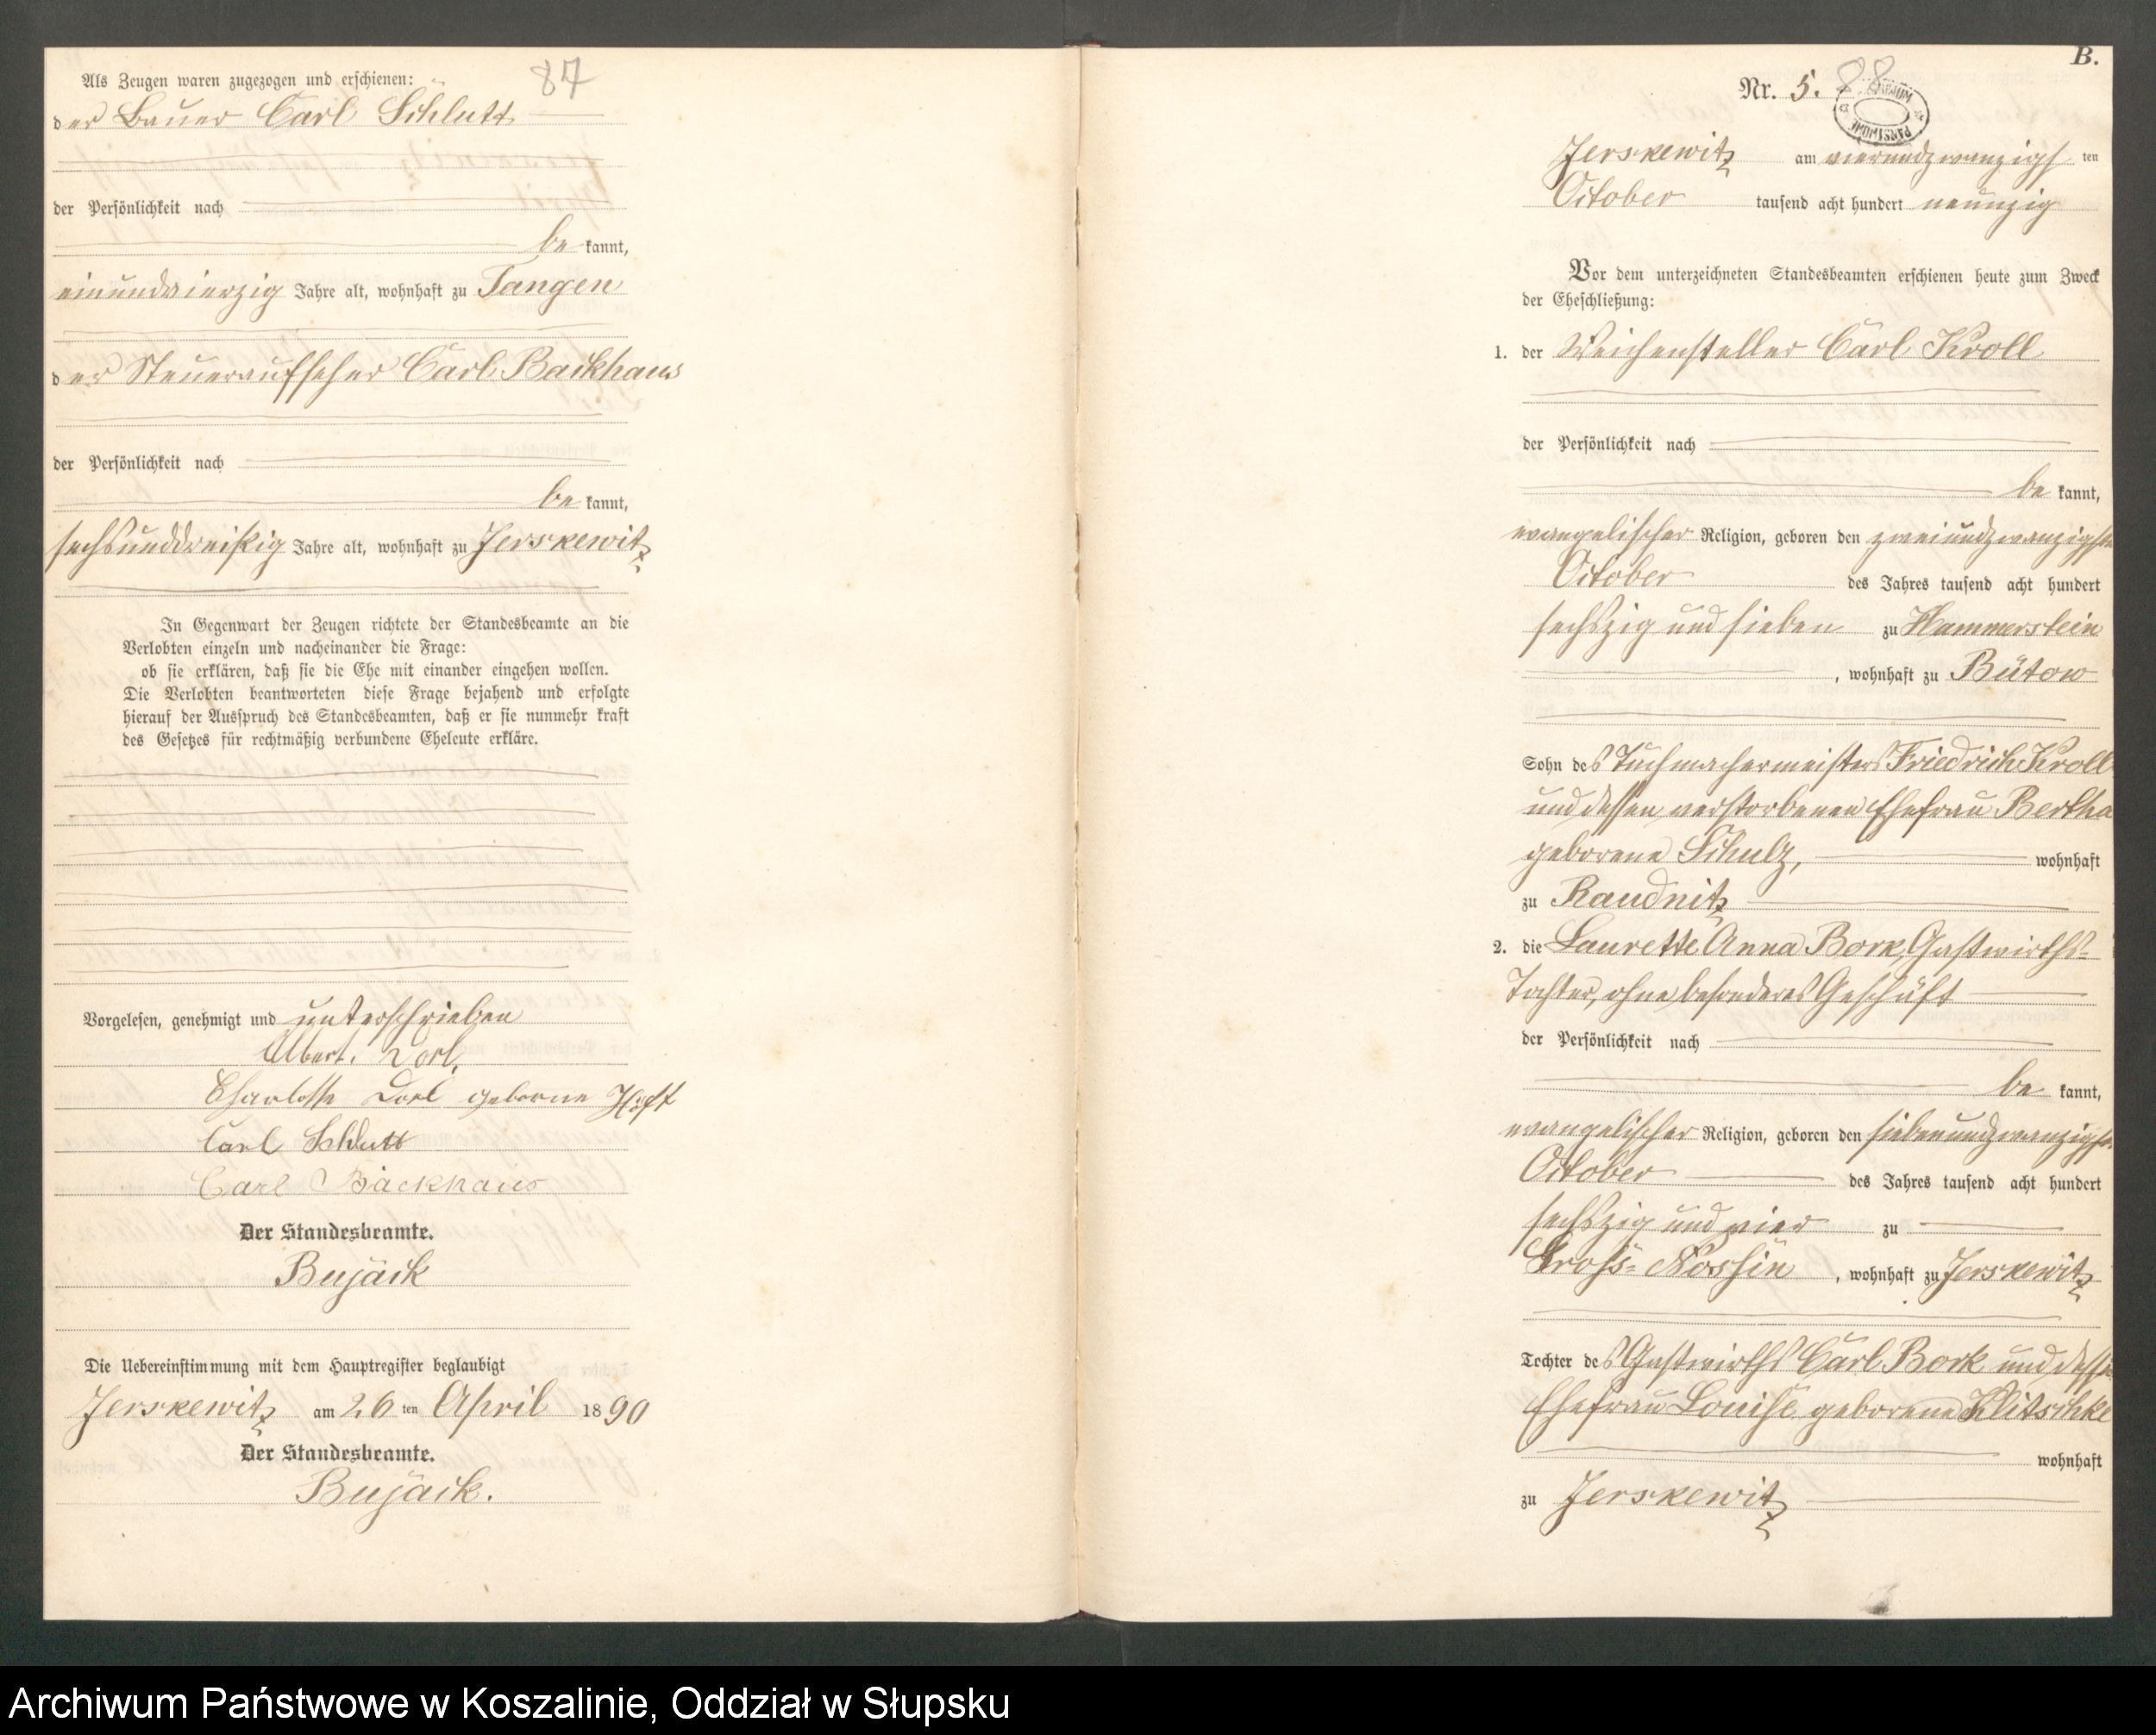 87
Als Zeugen waren zugezogen und erschienen:
der Bauer Carl Schlutt
der Persönlichkeit nach
be kannt,
einundvierzig Jahre alt, wohnhaft zu Tangen
der Steueraufseher Carl Backhaus
der Persönlichkeit nach
be kannt,
sechsunddreißig Jahre alt, wohnhaft zu Jerskewitz
In Gegenwart der Zeugen richtete der Standesbeamte an die
Verlobten einzeln und nacheinander die Frage:
ob sie erklären, daß sie die Ehe mit einander eingehen wollen.
Die Verlobten beantworteten diese Frage bejahend und erfolgte
hierauf der Ausspruch des Standesbeamten, daß er sie nunmehr kraft
des Gesetzes für rechtmäßig verbundene Eheleute erkläre.
Vorgelesen, genehmigt und unterschrieben
Albert
Charlotte geborne
Carl Schlutt
Carl Backhaus
Der Standesbeamte.
Bujack
Die Uebereinstimmung mit dem Hauptregister beglaubigt
Jerskewitz am 26 ten April 1890
Der Standesbeamte.
Bujack.
B.
Nr. 5. 88
Jerskewitz am vierundzwanzigs ten
October tausend acht hundert neunzig
Vor dem unterzeichneten Standesbeamten erschienen heute zum Zweck
der Eheschließung:
1. der Weichensteller Carl Kroll
der Persönlichkeit nach
be kannt,
evangelischer Religion, geboren den zweiundzwanzigsten
October des Jahres tausend acht hundert
sechszig und sieben zu Hammerstein
, wohnhaft zu Bütow
Sohn des Tuchmachermeisters Friedrich Kroll
und dessen verstorbenen Ehefrau Bertha
geborene Schulz, wohnhaft
zu Raudnitz
2. die Laurette Anna Bork, Gastwirths-
Tochter, ohne besonderes Geschäft
der Persönlichkeit nach
be kannt,
evangelischer Religion, geboren den siebenundzwanzigsten
October des Jahres tausend acht hundert
sechszig und vier zu
Gross-Nossin, wohnhaft zu Jerskewitz
Tochter des Gastwirths Carl Bork und dessen
Ehefrau Louise geborene Klitschke
wohnhaft
zu Jerskewitz
Archiwum Państwowe w Koszalinie, Oddział w Słupsku